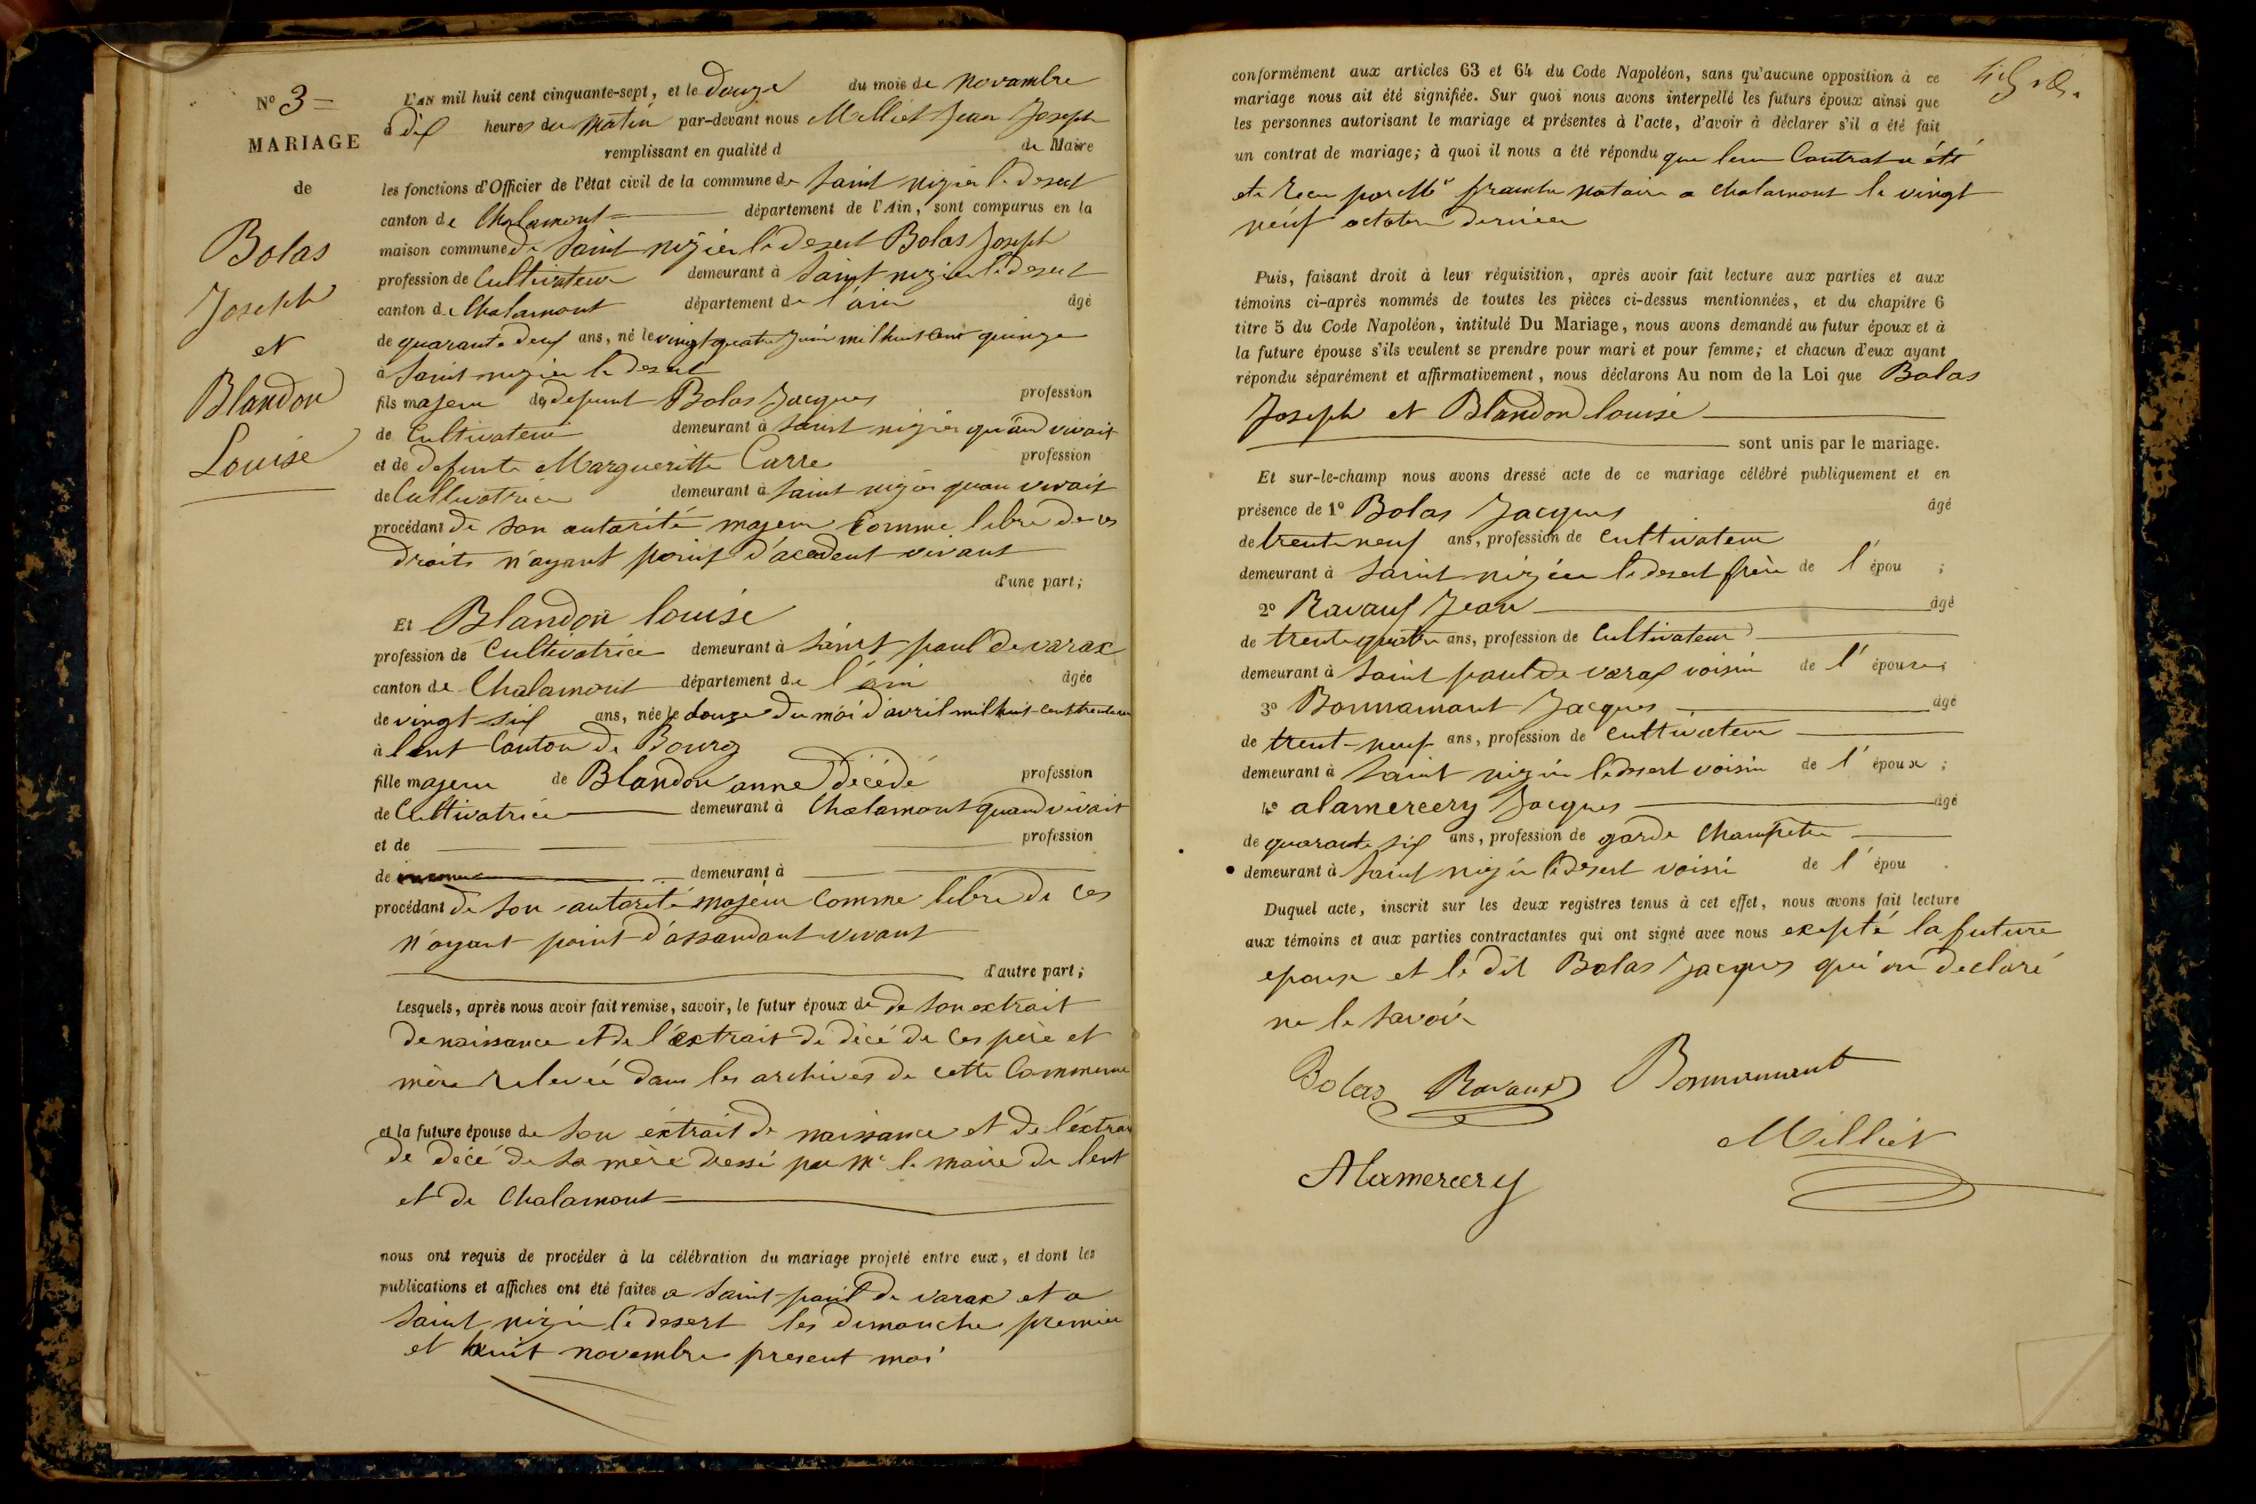 N° 3 =
MARIAGE
de
Bolas
Joseph
et
Blandon
Louise
L'AN mil huit cent cinquante-sept, et le Douze du mois de novambre
à dix heures du matin par-devant nous Milliet Jean Joseph
remplissant en qualité d de Maire
les fonctions d'Officier de l'état civil de la commune de Saint nizier le desert
canton de Chalamont département de l'Ain, sont comparus en la
maison commune de Saint nizier le desert Bolas Joseph
profession de Cultivateur demeurant à Saint nizier le desert
canton de Chalamont département de l'ain âgé
de quarante deux ans, né le vingt quatre Juin mil huit cent quinze
à Saint nizier le desert
fils majeur de defunt Bolas Jacques profession
de Cultivateur demeurant à Saint nizier quand vivait
et de defunte Margueritte Carre profession
de Cultivatrice demeurant à Saint nizier quan vivait
procédant de son autorité majeur Comme libre de ces
droits n'ayant point d'acendent vivant
d'une part;
Et Blandon louise
profession de Cultivatrice demeurant à Saint paul de varax
canton de Chalamont département de l'ain âgée
de vingt six ans, née le douze du moi d'avril mil huit cent trente un
à lent Canton de Bourg
fille majeur de Blandon anne Décédé profession
de Cultivatrice demeurant à Chalamont quand vivait
et de profession
de demeurant à
procédant de son autorité majeur Comme libre de ces
n'ayant point d'assandant vivant
d'autre part;
Lesquels, après nous avoir fait remise, savoir, le futur époux de de son extrait
de naissance et de l'extrait de décé de ces père et
mère relevée dans les archives de cette Commune
et la future épouse de son éxtrait de naissance et de l'éxtrait
de décé de sa mère dressé par Mr le maire de lent
et de Chalamont
nous ont requis de procéder à la célébration du mariage projeté entre eux, et dont les
publications et affiches ont été faites a Saint paul de varax et a
Saint nizier le desert les dimanche premier
et huit novembre present moi
conformément aux articles 63 et 64 du Code Napoléon, sans qu'aucune opposition à ce
mariage nous ait été signifiée. Sur quoi nous avons interpellé les futurs époux ainsi que
les personnes autorisant le mariage et présentes à l'acte, d'avoir à déclarer s'il a été fait
un contrat de mariage; à quoi il nous a été répondu que leur Contrat a été
été Recu par Me notaire a Chalamont le vingt
neuf octobre dernier
Puis, faisant droit à leur réquisition, après avoir fait lecture aux parties et aux
témoins ci-après nommés de toutes les pièces ci-dessus mentionnées, et du chapitre 6
titre 5 du Code Napoléon, intitulé Du Mariage, nous avons demandé au futur époux et à
la future épouse s'ils veulent se prendre pour mari et pour femme; et chacun d'eux ayant
répondu séparément et affirmativement, nous déclarons Au nom de la Loi que Bolas
Joseph et Blandon louise
sont unis par le mariage.
Et sur-le-champ nous avons dressé acte de ce mariage célébré publiquement et en
présence de 1° Bolas Jacques âgé
de trente neuf ans, profession de Cultivateur
demeurant à Saint nizier le desert frère de l'épou ;
2° Ravaux Jean âgé
de trente quatre ans, profession de Cultivateur
demeurant à Saint paul de varax voisin de l'épouse;
3° Bonnamant Jacques âgé
de trent-neuf ans, profession de Cultivateur
demeurant à Saint nizier le desert voisin de l'époux ;
4° alamercery Jacques âgé
de quarante six ans, profession de garde Champetre
demeurant à Saint nizier le desert voisin de l'épou .
Duquel acte, inscrit sur les deux registres tenus à cet effet, nous avons fait lecture
aux témoins et aux parties contractantes qui ont signé avec nous exepté la future
epouse et le dit Bolas Jacques qui on declaré
ne le Savoir
Bolas Ravaux Bonnamant
Milliet
Alamercery